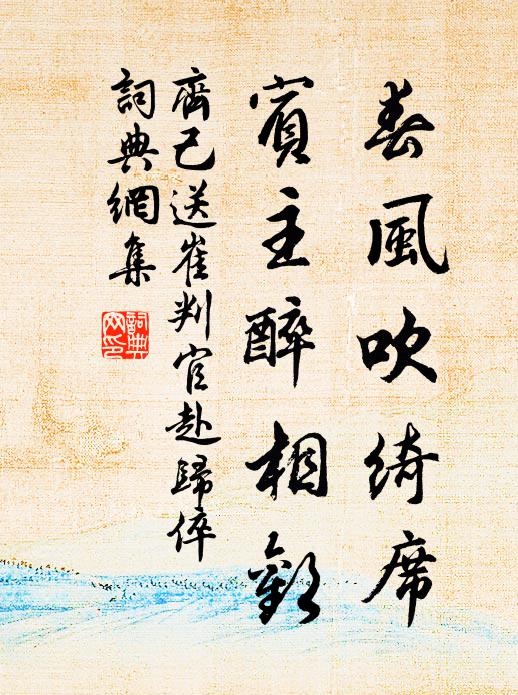 春風吹綺席
賓主醉相歡
齊己送崔判官赴歸倅
詞典網集
詞典网印